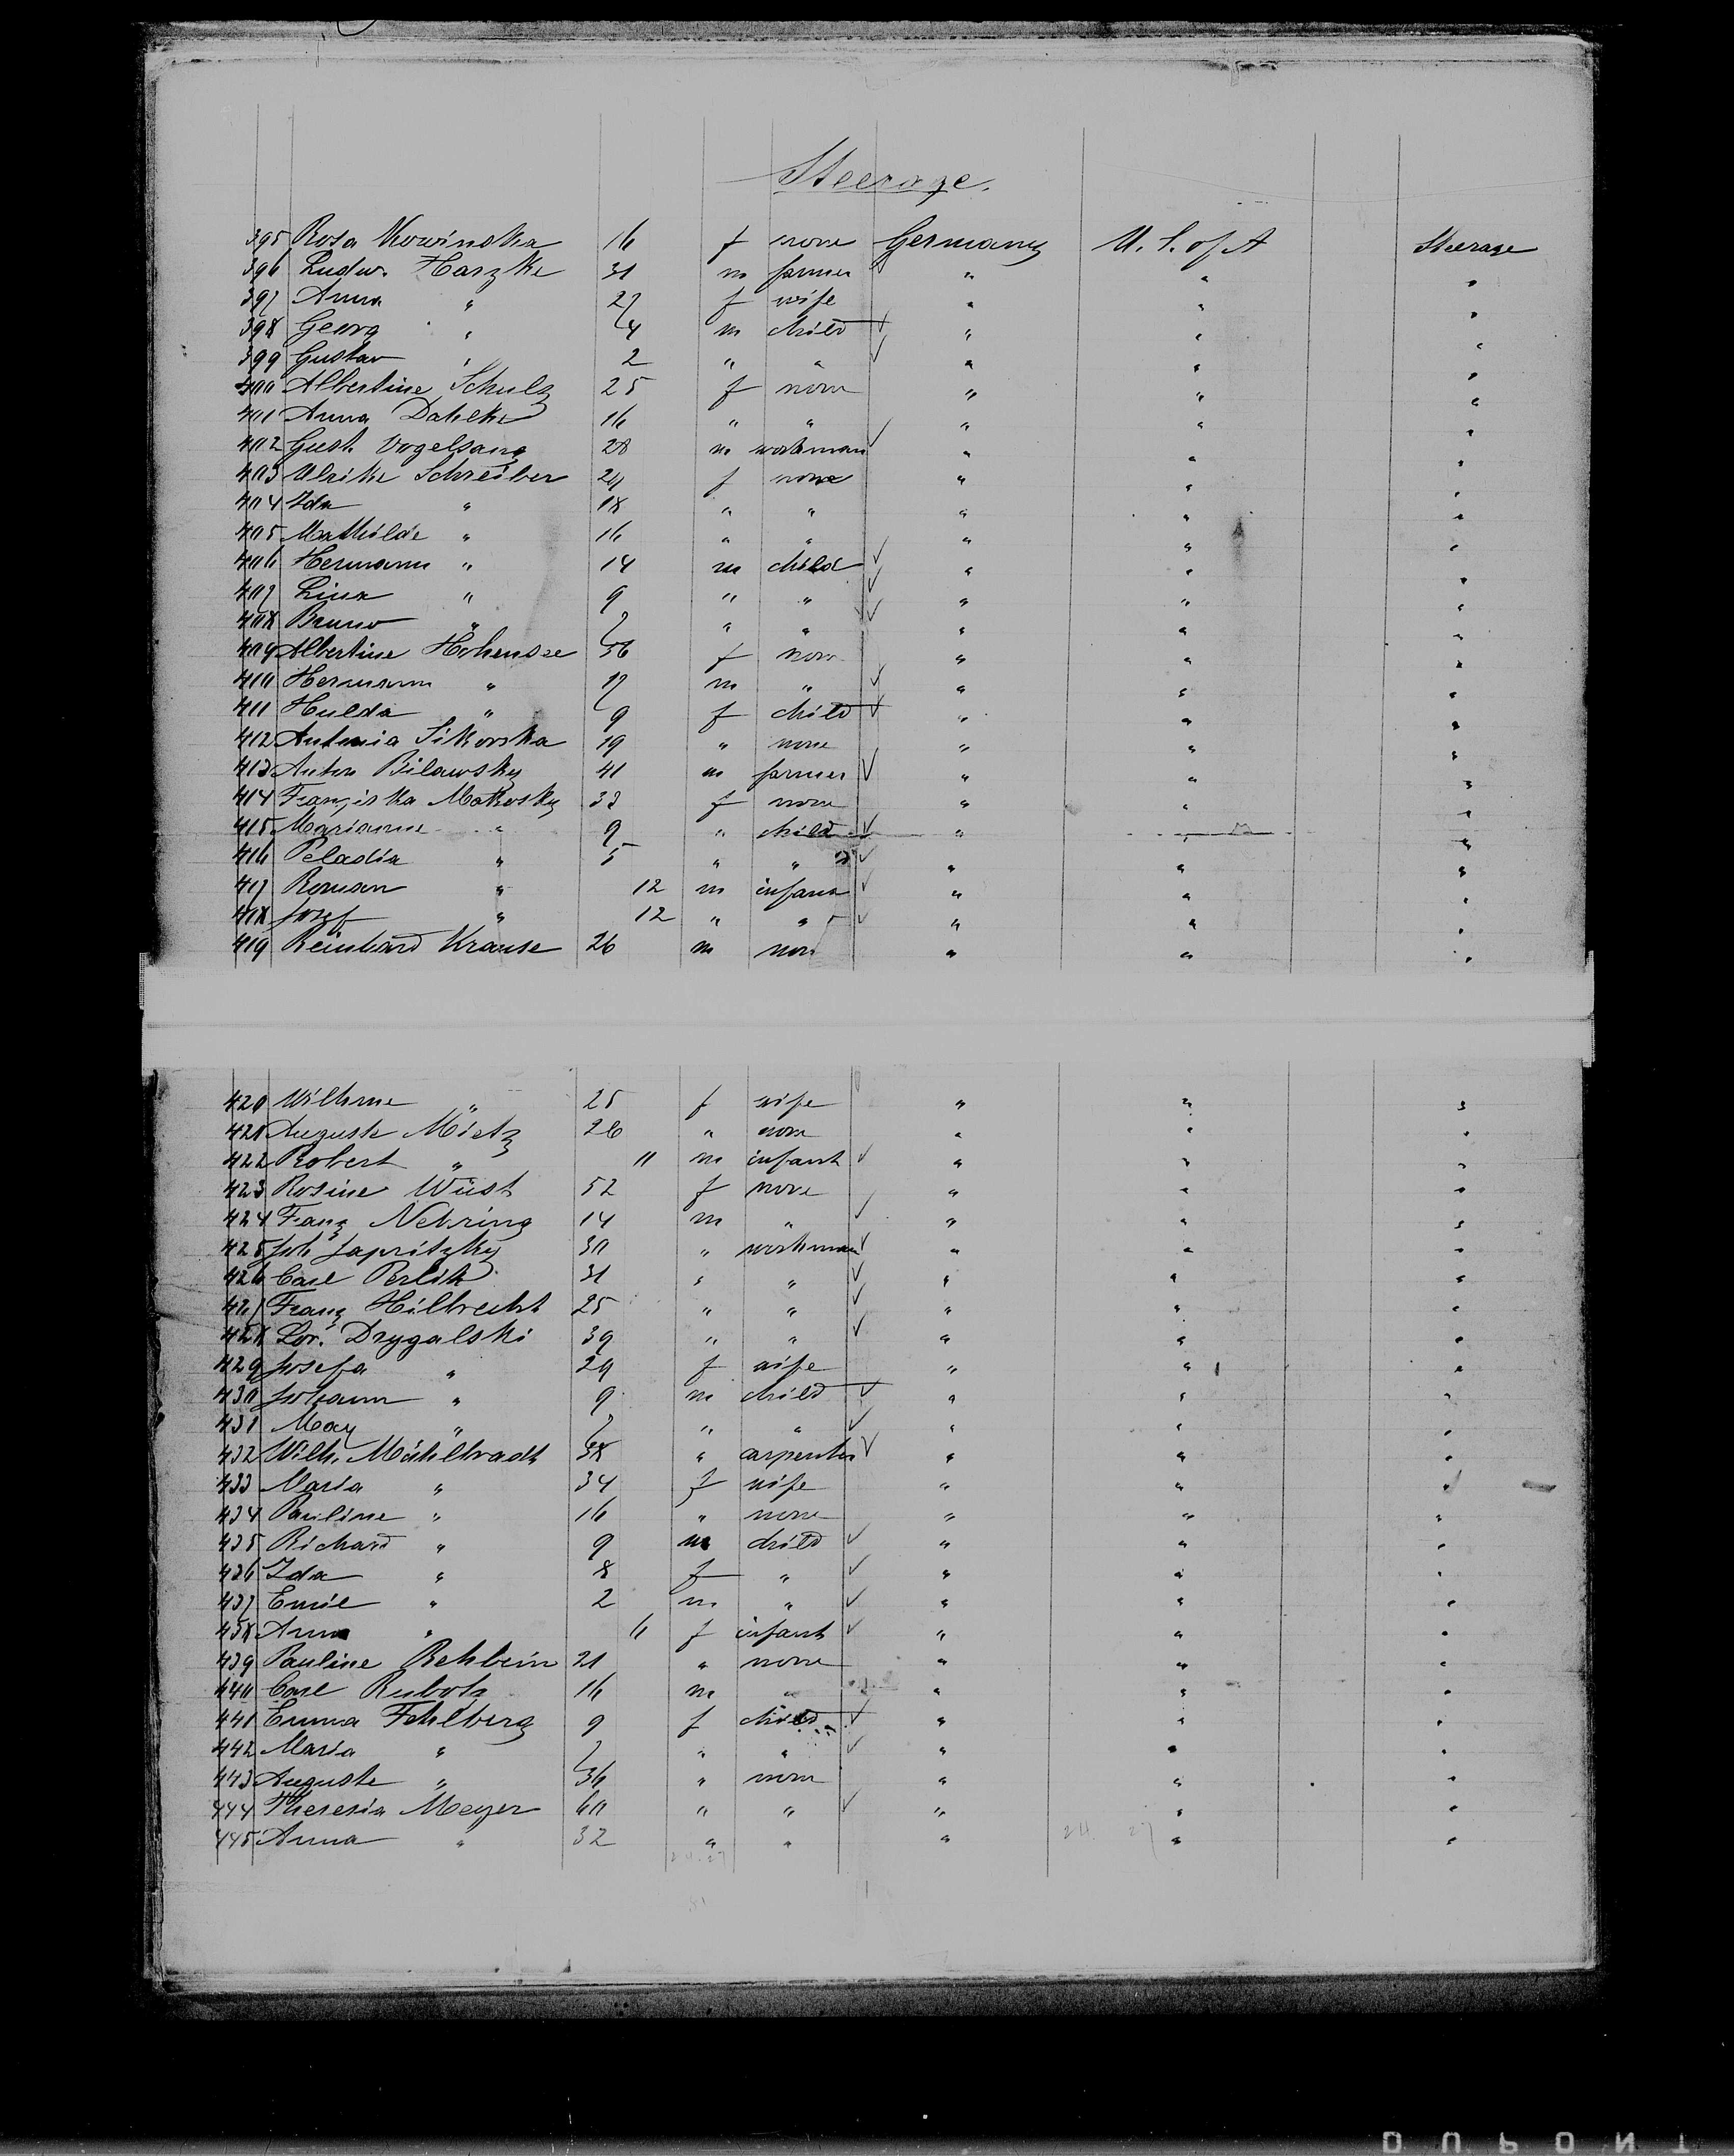 Steerage.
395 Rosa Kowinska 16 f none Germany U. S. of A Steerage
396 Ludw. Harzke 31 m farmer " " "
397 Anna " 27 f wife " " "
398 Georg " 4 m child " " "
399 Gustav " 2 " " " " "
400 Albertine Schulz 25 f none " " "
401 Anna Dahlke 16 " " " " "
402 Gust. Vogelsang 28 m workman " " "
403 Ulrike Schreiber 24 f none " " "
404 Ida " 18 " " " " "
405 Mathilde " 16 " " " " "
406 Hermann " 14 m child " " "
407 Lina " 9 " " " " "
408 Bruno " 7 " " " " "
409 Albertine Hohensee 56 f none " " "
410 Hermann " 17 m " " " "
411 Hulda " 9 f child " " "
412 Antonia Sikorska 19 " none " " "
413 Anton Bilawsky 41 m farmer " " "
414 Franziska Makosky 33 f none " " "
415 Marianne " 9 " child " " "
416 Peladia " 5 " " " " "
417 Roman " 12 m infant " " "
418 Josef " 12 " " " " "
419 Reinhard Krause 26 m none " " "
420 Wilhme " 25 f wife " " "
421 Auguste Mietz 26 " none " " "
422 Robert " 11 m infant " " "
423 Rosine Wüst 52 f none " " "
424 Franz Nehring 14 m " " " "
425 Joh Japritzky 30 " workman " " "
426 Carl Perlik 31 " " " " "
427 Franz Hilbrecht 25 " " " " "
428 Lor. Drygalski 39 " " " " "
429 Josefa " 29 f wife " " "
430 Johann " 9 m child " " "
431 Max " 7 " " " " "
432 Wilh. Mühlbradt 38 " carpenter " " "
433 Maria " 34 f wife " " "
434 Pauline " 16 " none " " "
435 Richard " 9 m child " " "
436 Ida " 8 f " " " "
437 Emil " 2 m " " " "
438 Anna " 11 f infant " " "
439 Pauline Rehbein 21 " none " " "
440 Carl Rubotz 16 m " " " "
441 Emma Fehlberg 9 f child " " "
442 Maria " 7 " " " " "
443 Auguste " 36 " none " " "
444 Theresia Meyer 60 " " " " "
445 Anna " 32 " " " " "
DUPONT